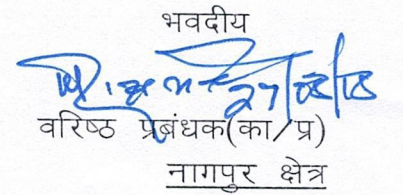 भवदीय
27/08/18
वरिष्ठ प्रबंधक(का/प्र)
नागपुर क्षेत्र